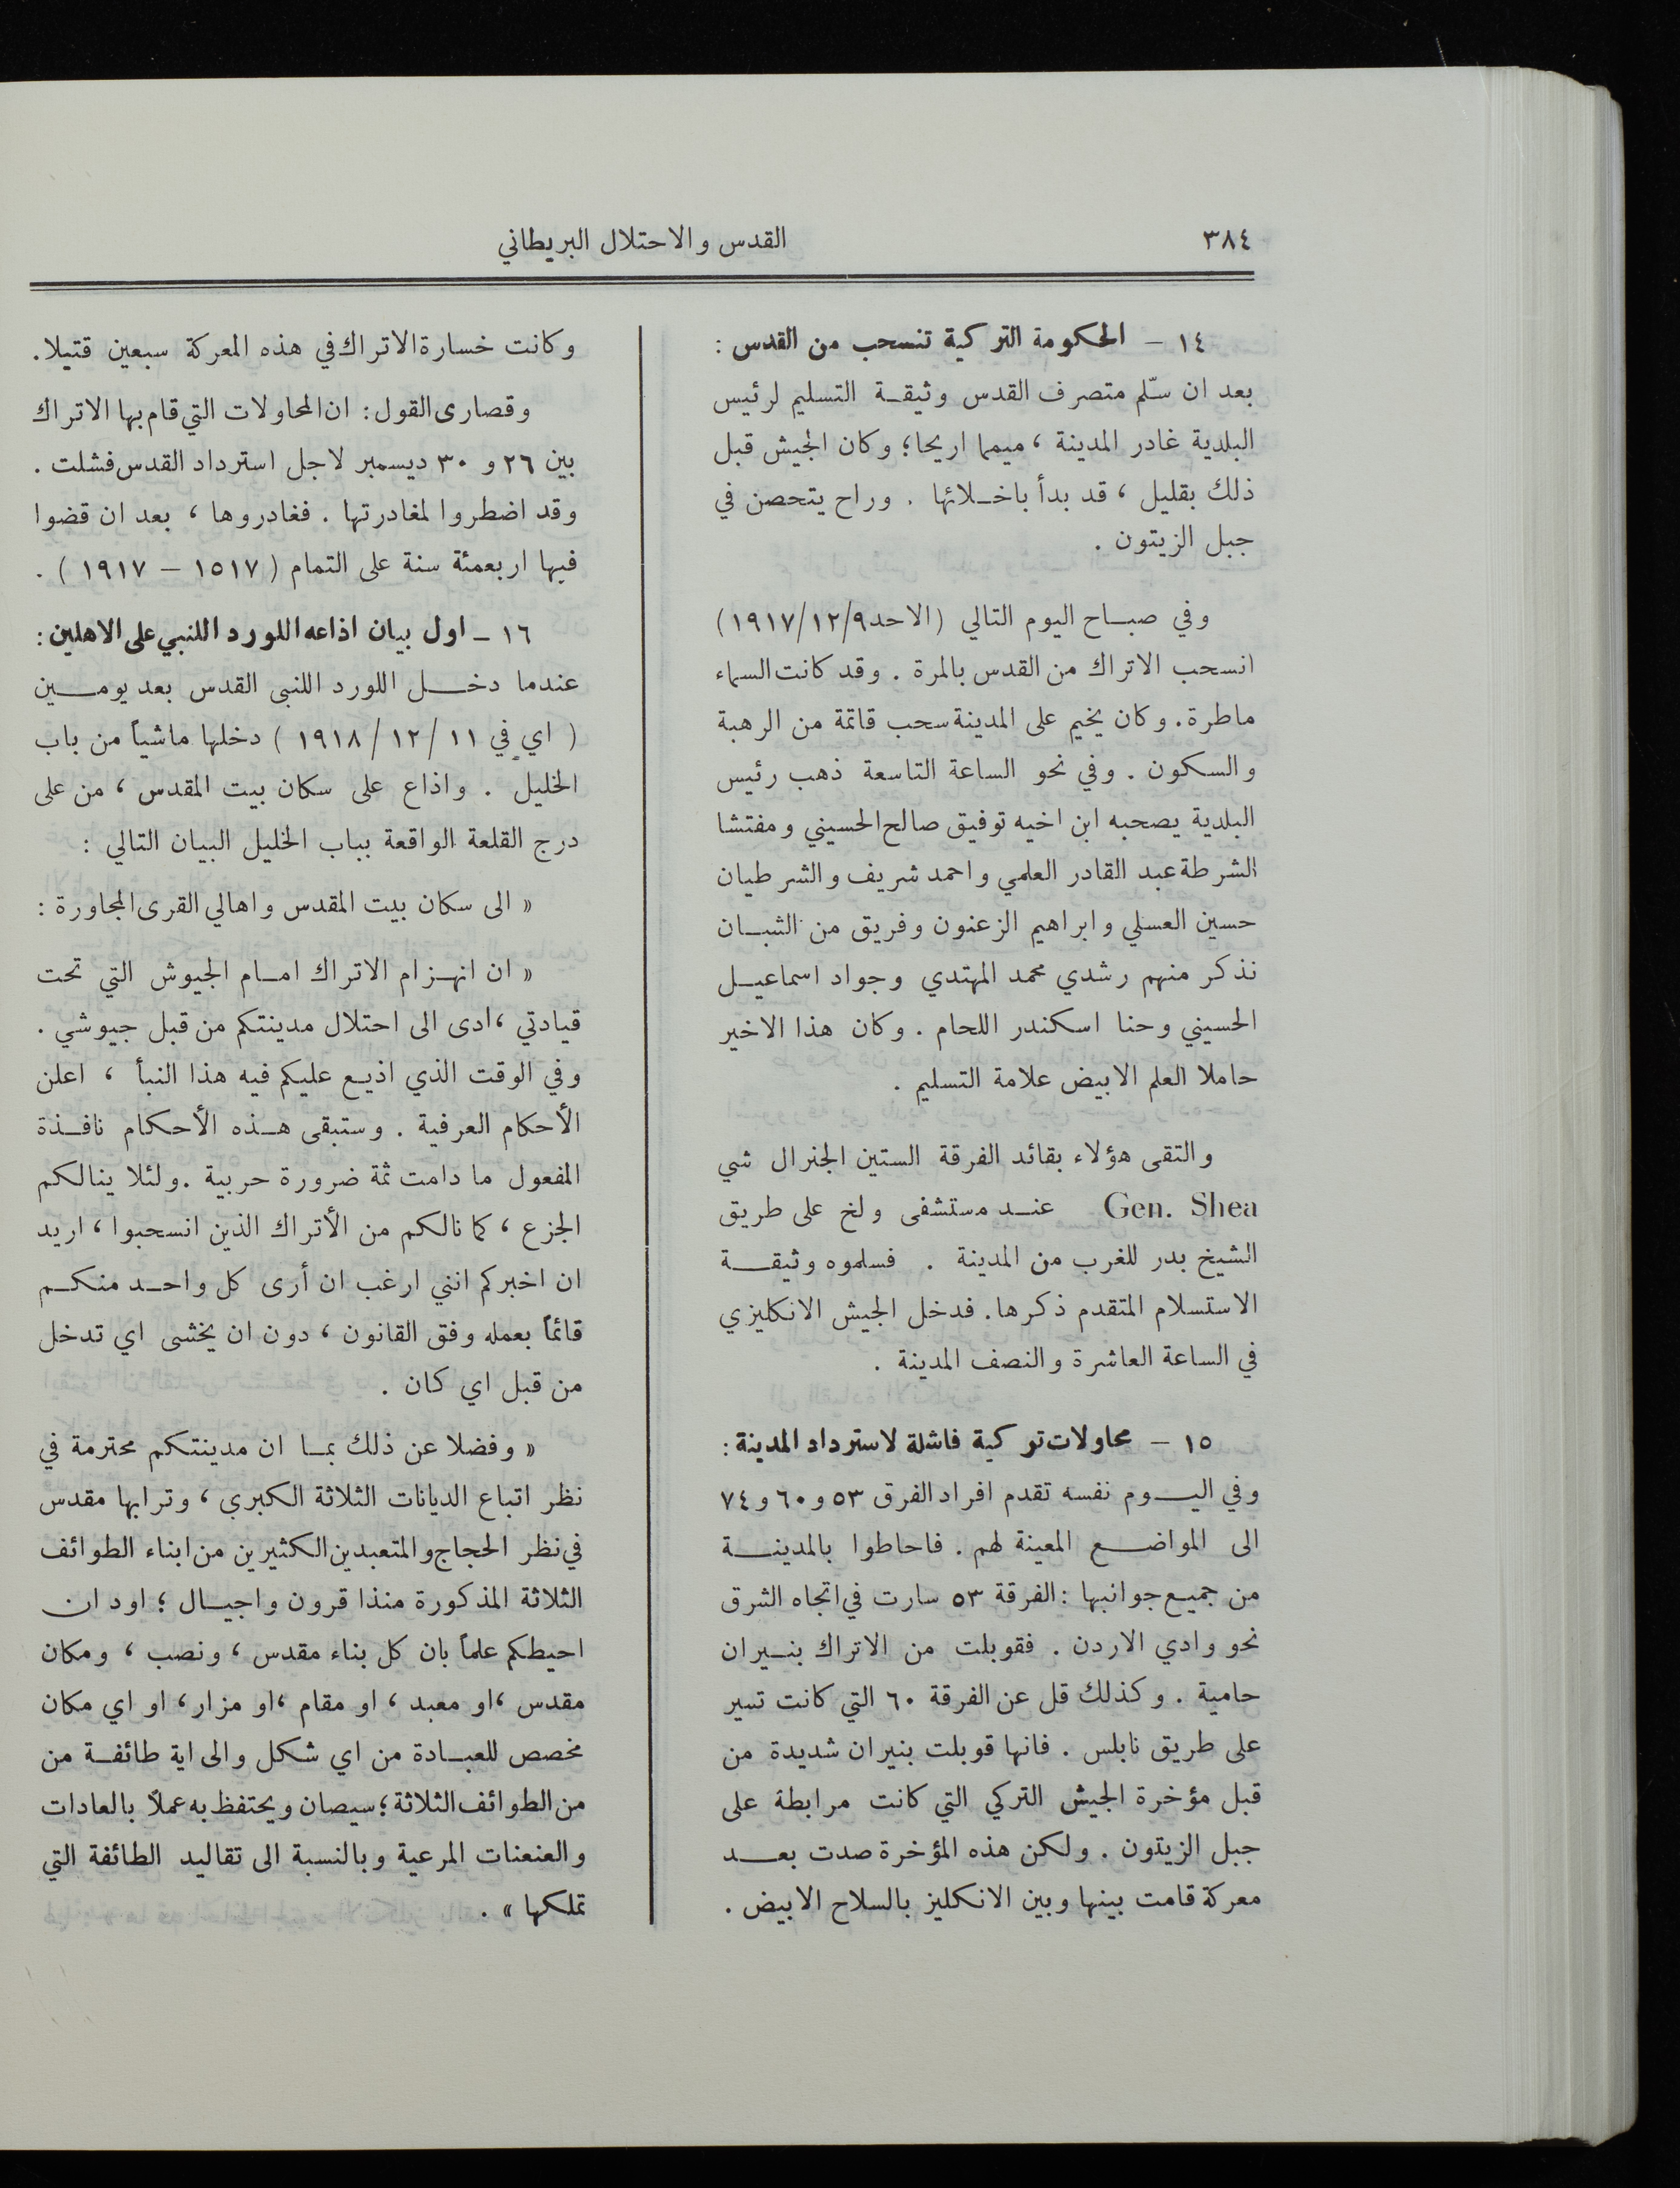 ٣٨٤
القدس والاحتلال البريطاني
١٤ – الحكومة التركية تنسحب من القدس :
بعد ان سلّم متصرف القدس وثيقة التسليم لرئيس
البلدية غادر المدينة ، ميمما اريحا؛ وكان الجيش قبل
ذلك بقليل ، قد بدأ باخلائها . وراح يتحصن في
جبل الزيتون .
وفي صباح اليوم التالي (الاحد ١٩١٧/١٢/٩)
انسحب الاتراك من القدس بالمرة . وقد كانت السماء
ماطرة. وكان يخيم على المدينة سحب قاتمة من الرهبة
والسكون . وفي نحو الساعة التاسعة ذهب رئيس
البلدية يصحبه ابن اخيه توفيق صالح الحسيني ومفتشا
الشرطة عبد القادر العلمي واحمد شريف والشرطيان
حسين العسلي وابراهيم الزعنون وفريق من الشبان
نذكر منهم رشدي محمد المهتدي وجواد اسماعيل
الحسيني وحنا اسكندر اللحام . وكان هذا الاخير
حاملا العلم الابيض علامة التسليم .
والتقى هؤلاء بقائد الفرقة الستين الجنرال شي
Gen. Shea عند مستشفى ولخ على طريق
الشيخ بدر للغرب من المدينة . فسلموه وثيقة
الاستسلام المتقدم ذكرها. فدخل الجيش الانكليزي
في الساعة العاشرة والنصف المدينة .
١٥ – محاولات تركية فاشلة لاسترداد المدينة :
وفي اليوم نفسه تقدم افراد الفرق ٥٣ و٦٠ و٧٤
الى المواضع المعينة لهم. فاحاطوا بالمدينة
من جميع جوانبها : الفرقة ٥٣ سارت في اتجاه الشرق
نحو وادي الاردن . فقوبلت من الاتراك بنيران
حامية . وكذلك قل عن الفرقة ٦٠ التي كانت تسير
على طريق نابلس . فانها قوبلت بنيران شديدة من
قبل مؤخرة الجيش التركي التي كانت مرابطة على
جبل الزيتون . ولكن هذه المؤخرة صدت بعد
معركة قامت بينها وبين الانكليز بالسلاح الابيض .
وكانت خسارة الاتراك في هذه المعركة سبعين قتيلا.
وقصارى القول : ان المحاولات التي قام بها الاتراك
بين ٢٦ و ٣٠ ديسمبر لاجل استرداد القدس فشلت .
وقد اضطروا لمغادرتها . فغادروها ، بعد ان قضوا
فيها اربعمئة سنة على التمام ( ١٥١٧ – ١٩١٧ ) .
١٦ – اول بيان اذاعه اللورد اللنبي على الاهلين :
عندما دخل اللورد اللنبى القدس بعد يومين
( اي في ١١ /١٢ /١٩١٨ ) دخلها ماشياً من باب
الخليل . واذاع على سكان بيت المقدس ، من على
درج القلعة الواقعة بباب الخليل البيان التالي :
« الى سكان بيت المقدس واهالي القرى المجاورة :
« ان انهزام الاتراك امام الجيوش التي تحت
قيادتي ،ادى الى احتلال مدينتكم من قبل جيوشي .
وفي الوقت الذي اذيع عليكم فيه هذا النبأ ، اعلن
الأحكام العرفية . وستبقى هذه الأحكام نافذة
المفعول ما دامت ثمة ضرورة حربية .ولئلا ينالكم
الجزع ، كما نالكم من الأتراك الذين انسحبوا ، اريد
ان اخبركم انني ارغب ان أرى كل واحد منكم
قائماً بعمله وفق القانون ، دون ان يخشى اي تدخل
من قبل اي كان .
« وفضلا عن ذلك بما ان مدينتكم محترمة في
نظر اتباع الديانات الثلاثة الكبرى ، وترابها مقدس
في نظر الحجاج والمتعبدين الكثيرين من ابناء الطوائف
الثلاثة المذكورة منذا قرون واجيال ؛ اود ان
احيطكم علماً بان كل بناء مقدس ، ونصب ، ومكان
مقدس ،او معبد ، او مقام ،او مزار، او اي مكان
مخصص للعبادة من اي شكل والى اية طائفة من
من الطوائف الثلاثة ؛ سيصان ويحتفظ به عملاً بالعادات
والعنعنات المرعية وبالنسبة الى تقاليد الطائفة التي
تملكها » .